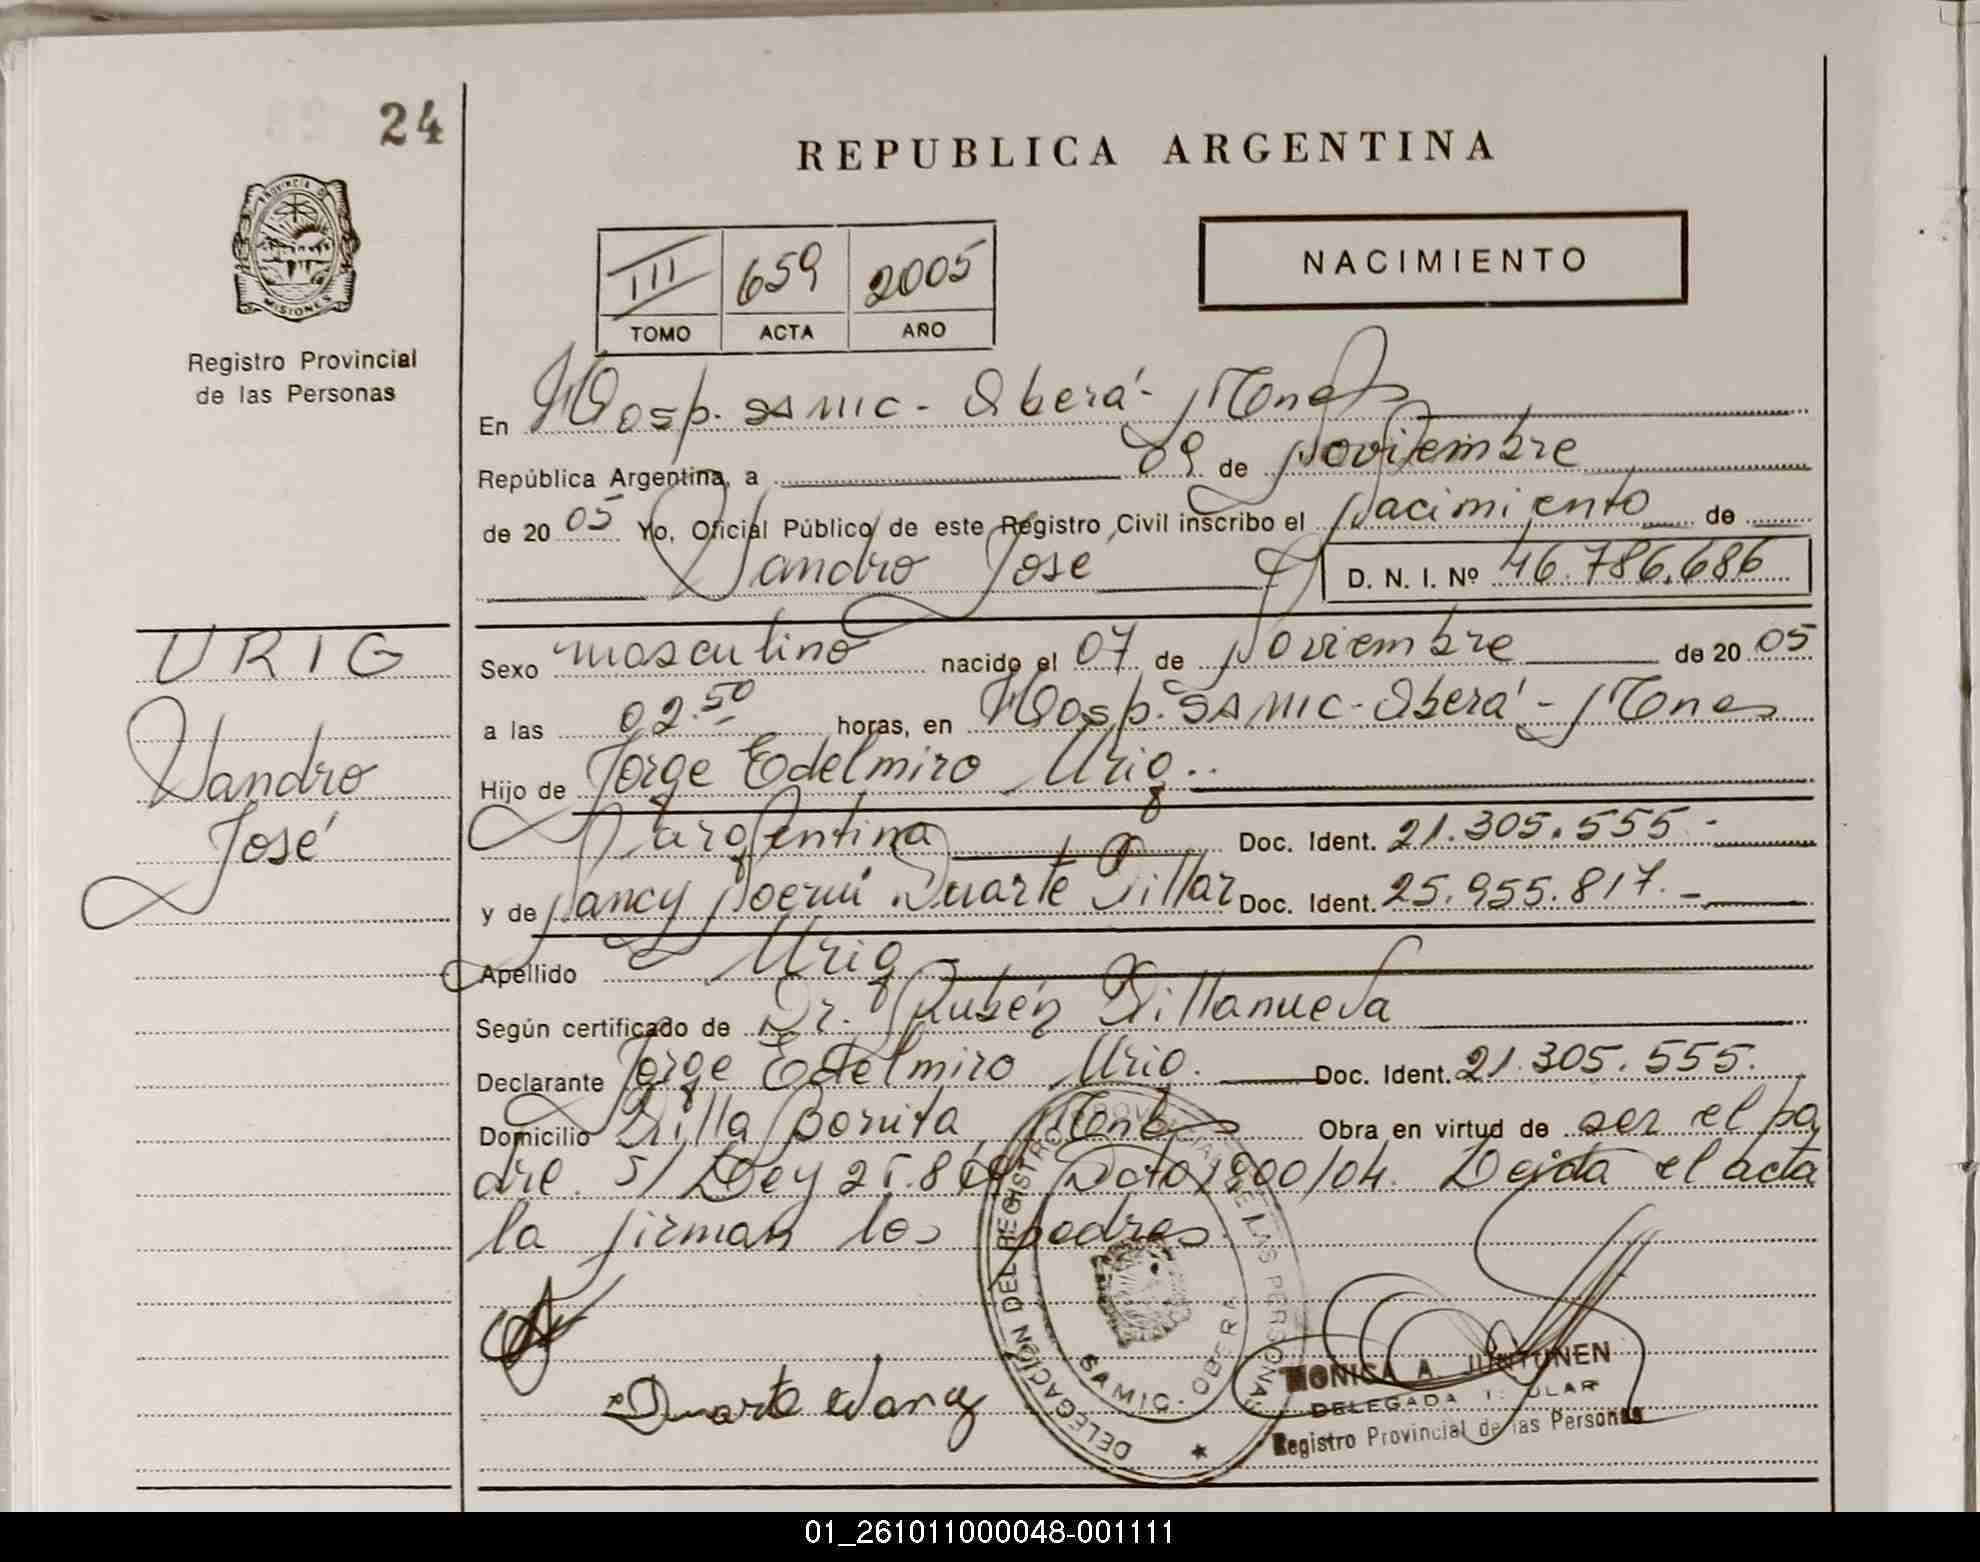 24
REPUBLICA ARGENTINA
PROVINCIA DE
MISIONES
Registro Provincial
de las Personas
III 659 2005
TOMO ACTA AÑO
NACIMIENTO
En Hosp. SAMIC - Oberá - Mnes
República Argentina, a 09 de Noviembre
de 2005 Yo, Oficial Público de este Registro Civil inscribo el Nacimiento de
Sandro José D. N. I. Nº 46.786.686
URIG
Sandro
José
Sexo masculino nacido el 07 de Noviembre de 2005
a las 02.50 horas, en Hosp. SAMIC - Oberá - Mnes
Hijo de Jorge Edelmiro Urig..
argentina Doc. Ident. 21.305.555.-
y de Nancy Noemí Duarte Villar Doc. Ident. 25.955.817.-
Apellido Urig
Según certificado de Dr. Rubén Villanueva
Declarante Jorge Edelmiro Urig. Doc. Ident. 21.305.555.
Domicilio Villa Bonita, Obra en virtud de ser el pa
dre. S/ Ley Dcto 1900/04. Leída el acta
la firman los padres.
Duarte Nancy
DELEGACION DEL REGISTRO PROVINCIAL DE LAS PERSONAS
SAMIC - OBERA
MONICA A. JUNTUNEN
DELEGADA TITULAR
Registro Provincial de las Personas
01_261011000048-001111